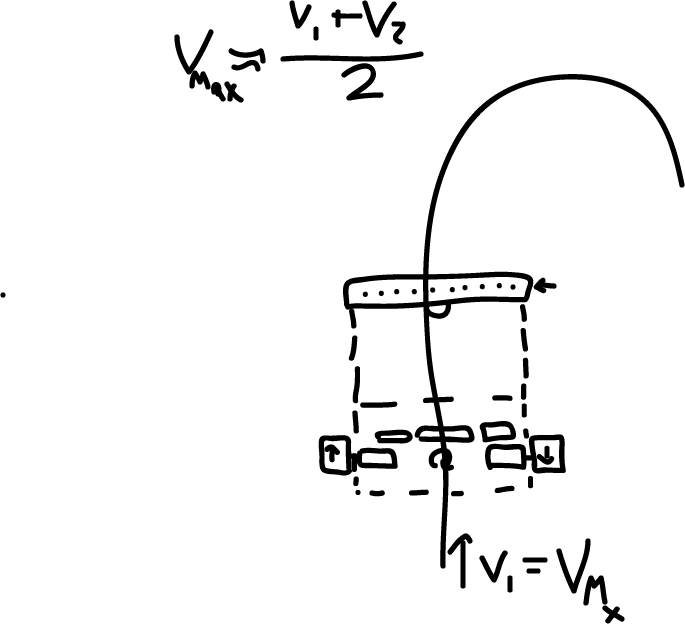 V_Max ≈ (V_1 + V_2) / 2
↑ V_1 = V_Mx